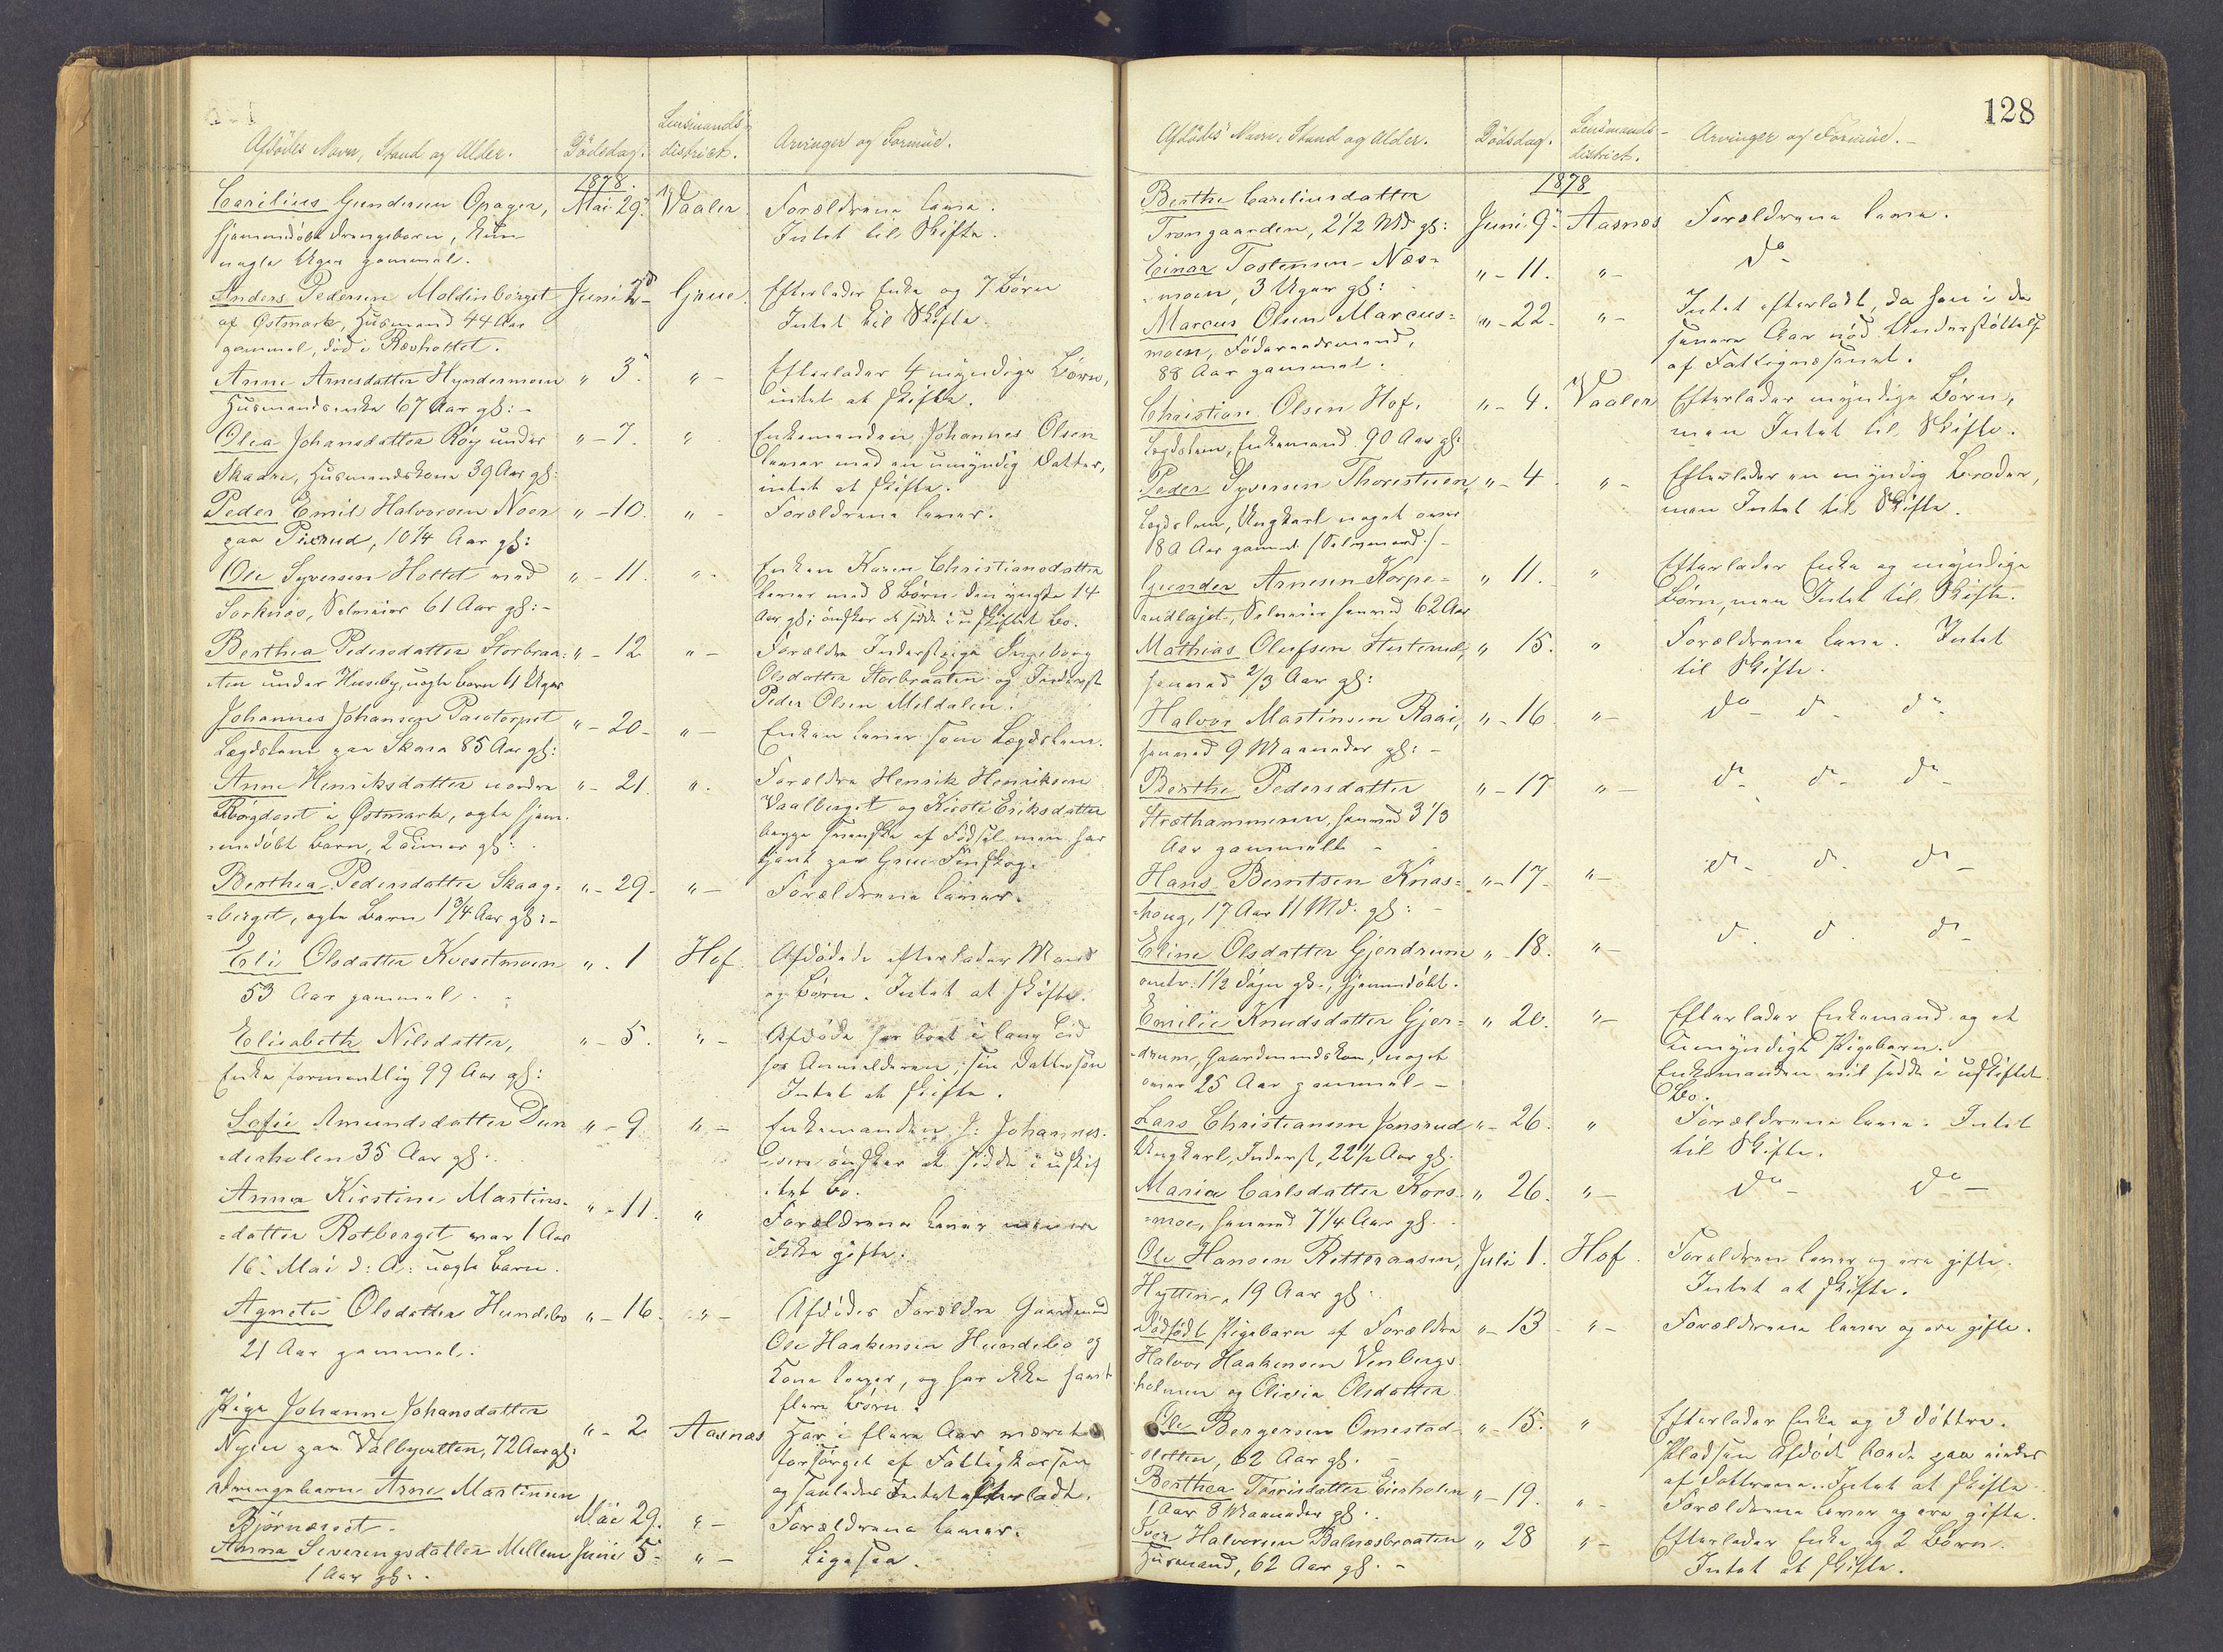 Afdödes Navn, Stand og Alder.
Dödsdag.
Lensmands-
district.
Arvinger og Formue.
1878.
Carilius Gundersen Opager,
Mai 29.
Vaaler
Forældrene leve.
hjemmedøbt Drengebarn, kun
Intet til Skifte.
nogle Uger gammel.
Anders Pedersen Moldinberget
Juni 2
Grue.
Efterlader Enke og 7 Børn
af Østmark, Husmand 44 Aar
Intet til Skifte.
gammel, død i Revholtet.
Anne Arnesdatter Hyndermoen
" 3.
" -
Efterlader 4 myndige Børn,
Husmandsenke 67 Aar gl: -
intet at skifte.
Olea Johansdatter Röy under
" - 7.
"
Enkemanden Johannes Olsen
Skaare, Husmandskone 39 Aar gl:
lever med en umyndig Datter,
intet at skifte.
Peder Emil Halvorsen Noer
" - 10.
" -
Forældrene lever.
paa Pixrud, 10 1/4 Aar gl:
Ole Syversen Holtet med
" - 11.
" -
Enken Karen Christiansdatter
Sorknæs, Selveier 61 Aar gl: -
lever med 8 Børn den yngste 14
Aar gl; ønsker at sidde i uskiftet Bo.
Berthea Pedersdatter Storbraa-
" - 12
" -
Forældre Inderstpige Ingeborg
ten under Huseby, uægte Barn 4 Uger
Olsdatter Storbraaten og Inderst
Peder Olsen Meldalen.
Johannes Johansen Pastorpet
" - 20 -
" -
Enken lever som Lægdslem.
Lægdslem paa Skara 85 Aar gl:
Anne Henriksdatter nordre
" - 21.
" .
Forældre Henrik Henriksen
Röigdoset i Østmark, ægte hjem-
Vaalberget og Kirsti Eriksdatter
medøbt Barn, 2 Timer gl:
begge svenske af Fødsel men har
tjent paa Grue Finskog.
Berthea Pedersdatter Skaag-
" - 29.
" -
Forældrene lever.
=berget, ægte Barn 1 3/4 Aar gl: -
Eli Olsdatter Kvesetmoen
" . 1
Hof.
Afdøde efterlader Mand
53 Aar gammel.
og Børn. Intet at skifte.
Elisabeth Nilsdatter,
" - 5.
" -
Afdøde har boet i lang Tid
Enke formentlig 99 Aar gl:
hos Anmelderen, sin Dattersøn
Intet at skifte.
Sofie Amundsdatter Dun
" - 9
" -
Enkemanden J: Johannes-
=derholen 35 Aar gl.
ønsker at sidde i uskif
tet Bo.
Anna Kirstine Martins-
" - 11.
"
Forældrene lever men er
=datter Rotberget var 1 Aar
ikke gifte.
16. Mai d: A: uægte Barn.
Agnete Olsdatter Hundebo
" - 16.
" -
Afdødes Forældre Gaardmand
21 Aar gammel.
Ole Haakensen Hundebo og
Kone lever, og har ikke havt
flere Børn.
Pige Johanne Johansdatter
" - 2
Aasnæs
Har i flere Aar været
Nyen paa Valbysætten, 72 Aar gl:
forsørget af Fattigkassen
og saaledes Intet efterladt.
Drengebarn Arne Martinsen
Mai 29.
" -
Forældrene lever.
Björneset.
Anna Severinsdatter Mellem
Juni 5
" -
Ligesaa.
1 Aar gl.
128
Afdödes Navn, Stand og Alder.
Dödsdag.
Lensmands-
district.
Arvinger og Formue. -
1878
Berthe Careliusdatter
Juni 9
Aasnæs
Forældrene leve.
Trongaarden, 2 1/2 Md gl:
Einar Tostensen Næs-
" - 11.
" -
do
=moen, 3 Uger gl:
Marcus Olsen Marcus-
" - 22.
" -
Intet efterladt, da han i de
moen, Føderaadsmand,
senere Aar nød Understøttelse
88 Aar gammel.
af Fattigvæsenet.
Christian Olsen Hof.
" - 4.
Vaaler
Efterlader myndige Børn,
Lægdslem, Enkemand 90 Aar gl:
men Intet til Skifte.
Peder Syversen Thorestuen,
" - 4
" -
Efterlader en myndig Broder,
Lægdslem, Ungkarl noget over
men Intet til Skifte.
80 Aar gammel
Gunder Arnesen Korpe-
" 11.
"
Efterlader Enke og myndige
Selveier henved 62 Aar
Børn, men Intet til Skifte.
Mathias Olufsen
" 15.
"
Forældrene leve. Intet
henved 2/3 Aar gl:
til Skifte.
Halvor Martinsen Raai,
" - 16
" -
do - do - do
henved 9 Maaneder gl: -
Berthe Pedersdatter
" - 17
" -
do - do - do
Stræthammeren, henved 3 1/3
Aar gammelt -
Hans Berntsen Knas-
" - 17
" -
do - do - do -
=haug, 17 Aar 11 Md. gl: -
Eline Olsdatter Gjerdrum
" 18.
" -
do. do. do -
omtr. 1 1/2 Døgn gl., hjemmedøbt.
Emilie Knudsdatter Gjer-
" 20.
" -
Efterlader Enkemand og et
=drum, Gaardmandskone, noget
umyndigt Pigebarn.
over 25 Aar gammel -
Enkemanden vil sidde i uskiftet
Bo.
Lars Christiansen Jonsrud
" - 26.
"
Forældrene leve. Intet
Ungkarl, Inderst, 22 1/2 Aar gl.
til Skifte.
Maria Carlsdatter Kors-
" 26.
" -
do - do -
=moe, henved 7 1/4 Aar gl.
Ole Hansen Ritteraasen,
Juli 1.
Hof.
Forældrene lever og ere gifte.
Hytten, 19 Aar gl.
Intet at skifte.
Dødfødt Pigebarn af Forældre
" - 13
" -
Forældrene lever og ere gifte.
Halvor Haakensen Venbergs-
holmen og Olivia Olsdatter
Ole Bergersen Omestad-
" - 15.
"
Efterlader Enke og 3 Døttre.
sletten, 62 Aar gl. -
Pladsen Afdøde boede paa eies
af Dattrene. Intet at skifte.
Berthea
" - 19.
" -
Forældrene lever og ere gifte.
1 Aar 8 Maaneder gl.
Iver Halvorsen Balnæsbraaten
" 28
" -
Efterlader Enke og 2 Børn.
Husmand, 62 Aar gl. -
Intet at skifte.